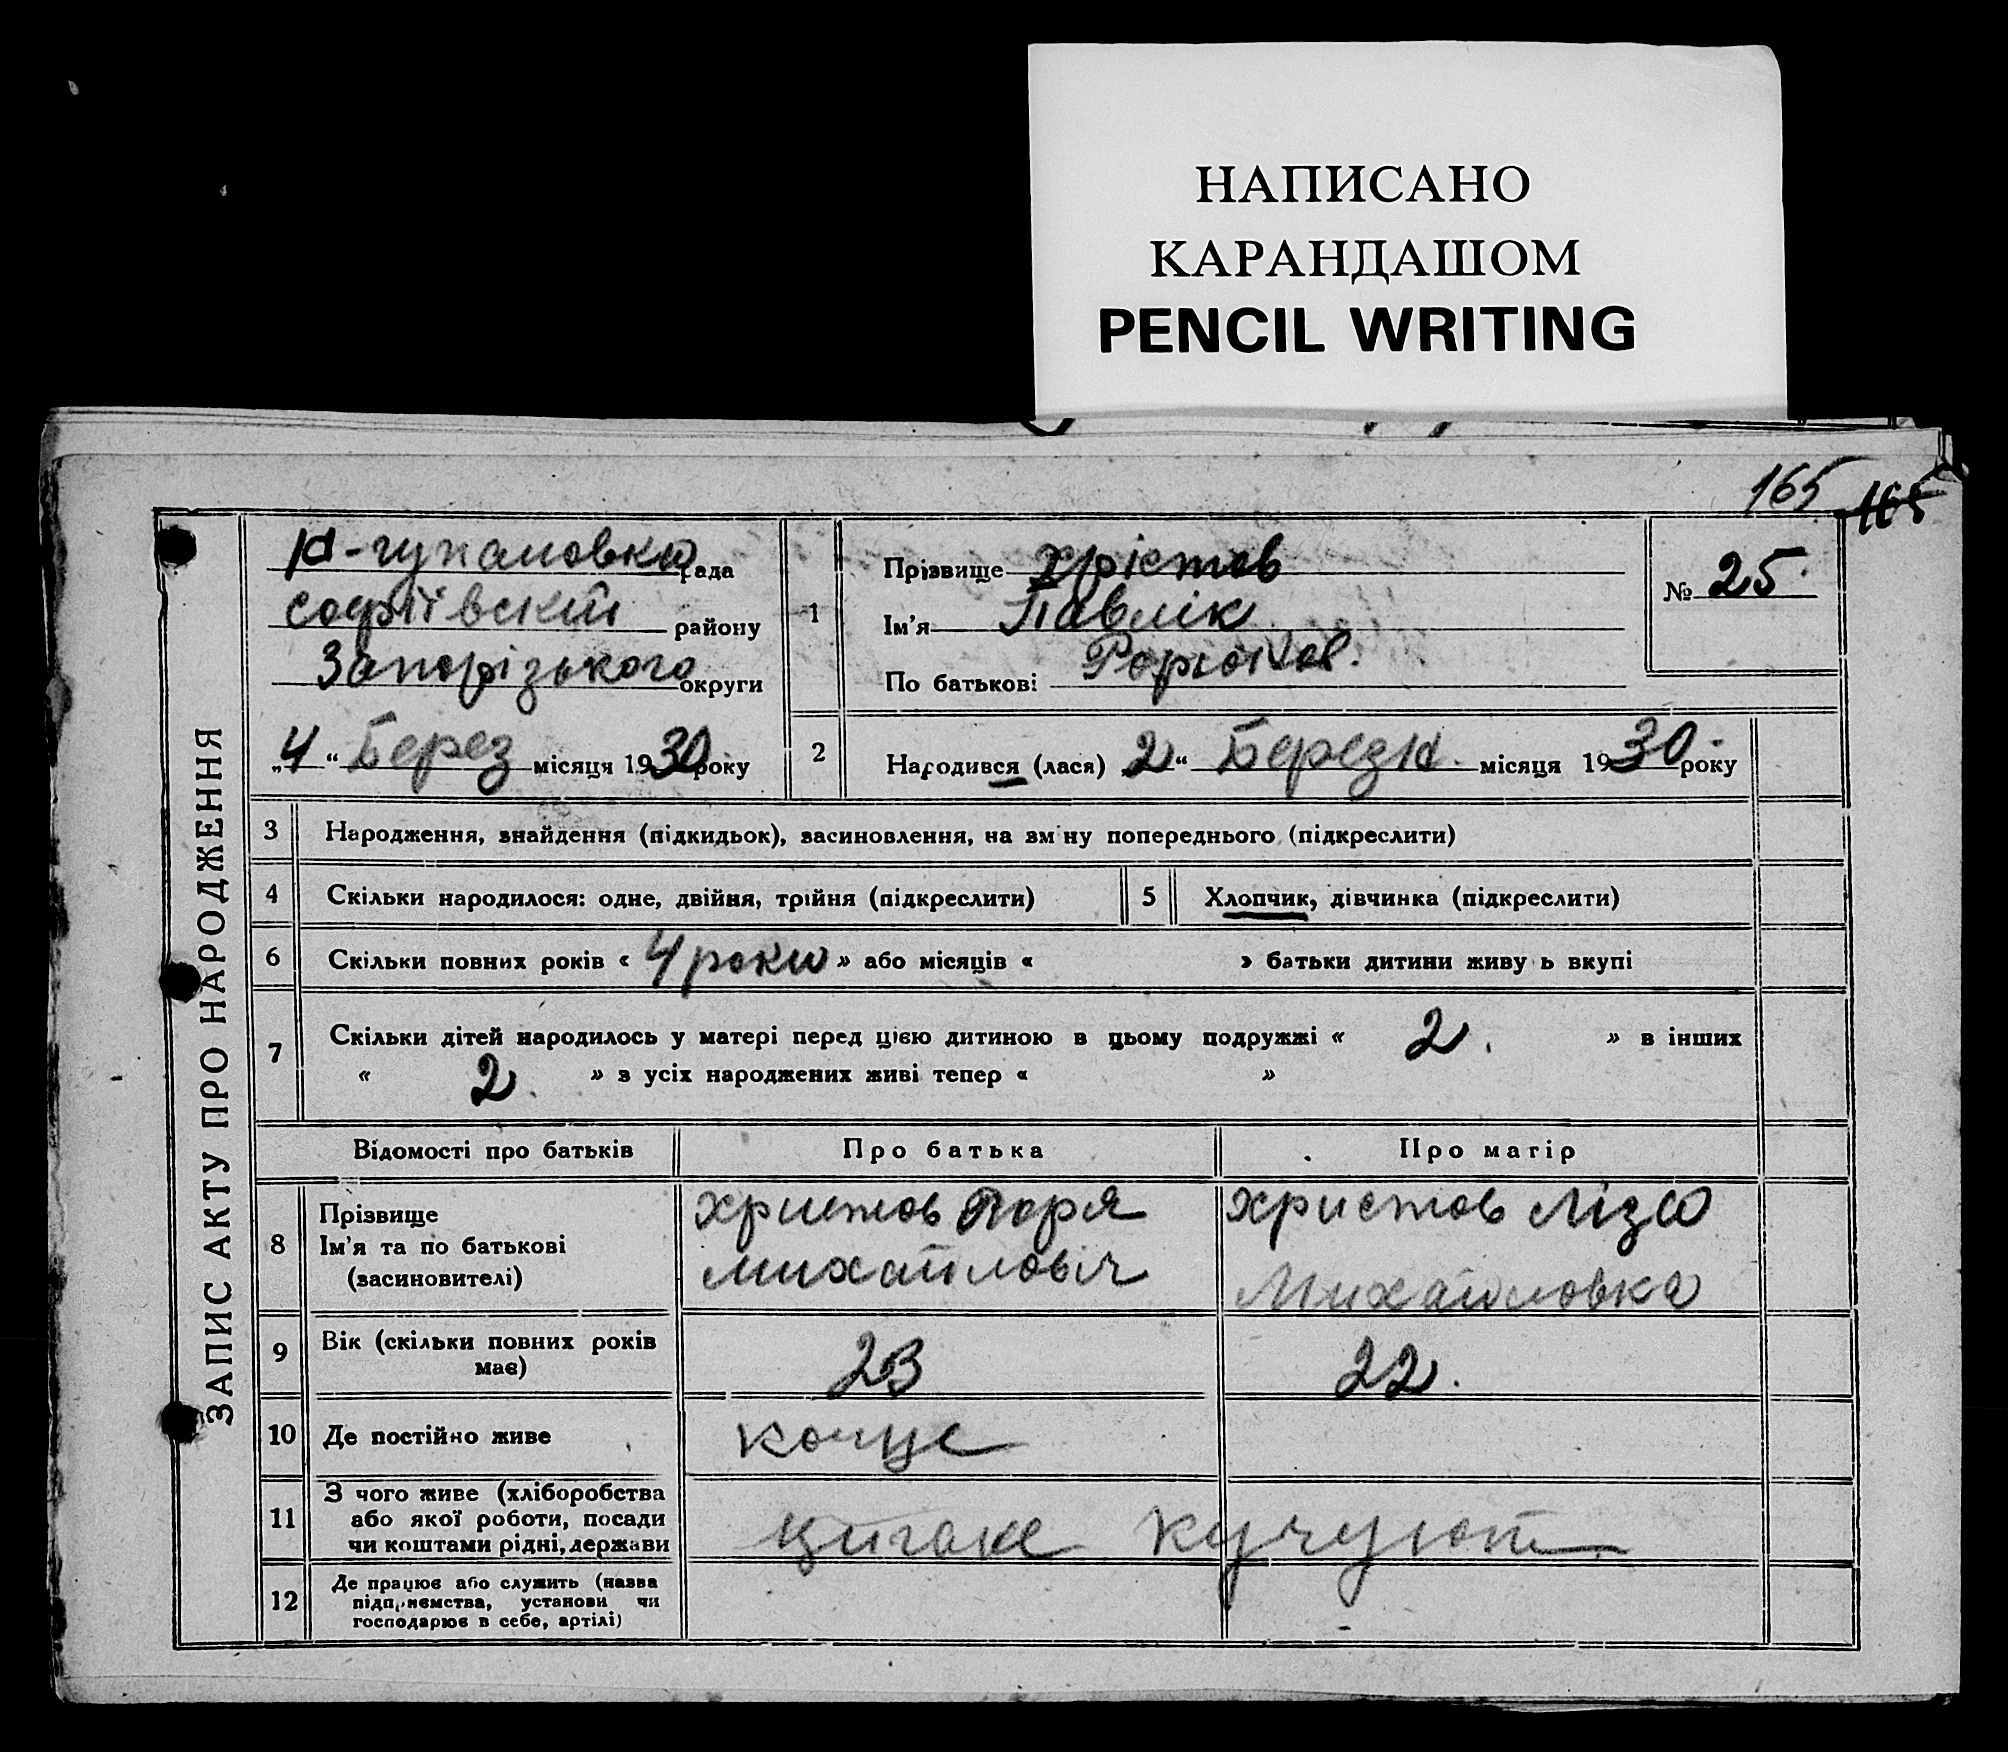 НАПИСАНО
КАРАНДАШОМ
PENCIL WRITING
165 165
ЗАПИС АКТУ ПРО НАРОДЖЕННЯ
рада
софіївский району
Запорізького округи
„4“ Берез місяця 1930 року
1
Прізвище Хрістов
Ім'я Павлік
По батькові
№ 25.
2 Народився (лася) 2“ Березня місяця 1930. року
3 Народження, знайдення (підкидьок), засиновлення, на зміну попереднього (підкреслити)
4 Скільки народилося: одне, двійня, трійня (підкреслити) 5 Хлопчик, дівчинка (підкреслити)
6 Скільки повних років « 4 роки » або місяців « » батьки дитини живу ь вкупі
7 Скільки дітей народилось у матері перед цією дитиною в цьому подружжі « 2. » в інших
« 2. » з усіх народжених живі тепер « »
Відомості про батьків Про батька Про матір
8 Прізвище
Ім'я та по батькові
(засиновителі)
Христов
михайловіч
Христов Ліза
Михайловка
9 Вік (скільки повних років
має)
23 22.
10 Де постійно живе кочує
11 З чого живе (хліборобства
або якої роботи, посади
чи коштами рідні, держави
цигане кучуют
12 Де працює або служить (назва
підприємства, установи чи
господарює в себе, артілі)